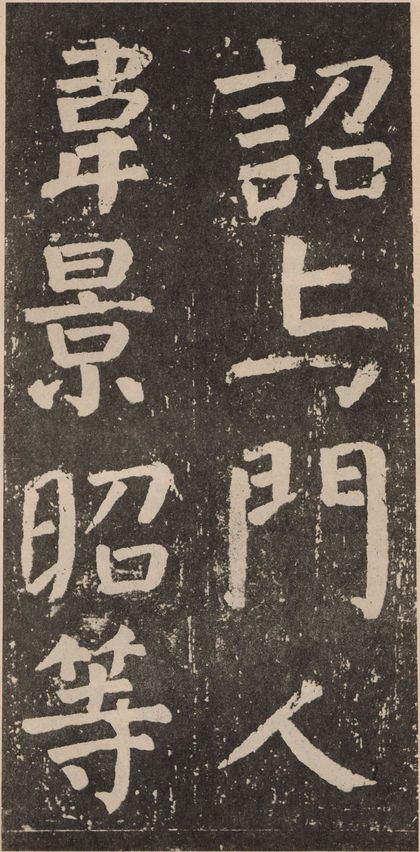 詔与門人
韋景昭等